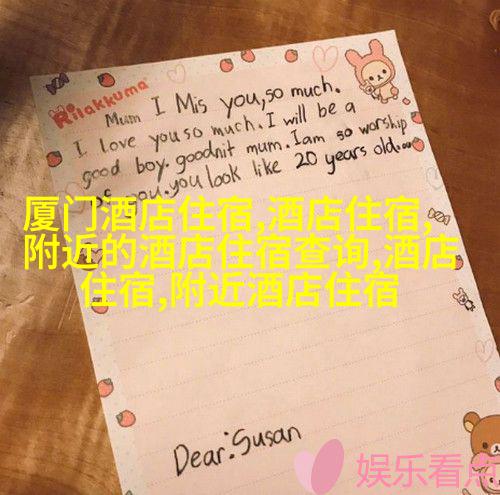 Rilakkuma
Mum I Mis you,so much.
I love you so much.I will be a
good boy.goodnit mum.Iam so worship
you.you look like 20 years old.
厦门酒店住宿,酒店住宿,
附近的酒店住宿查询,酒店
住宿,附近酒店住宿
Dear:Susan
娱乐看点